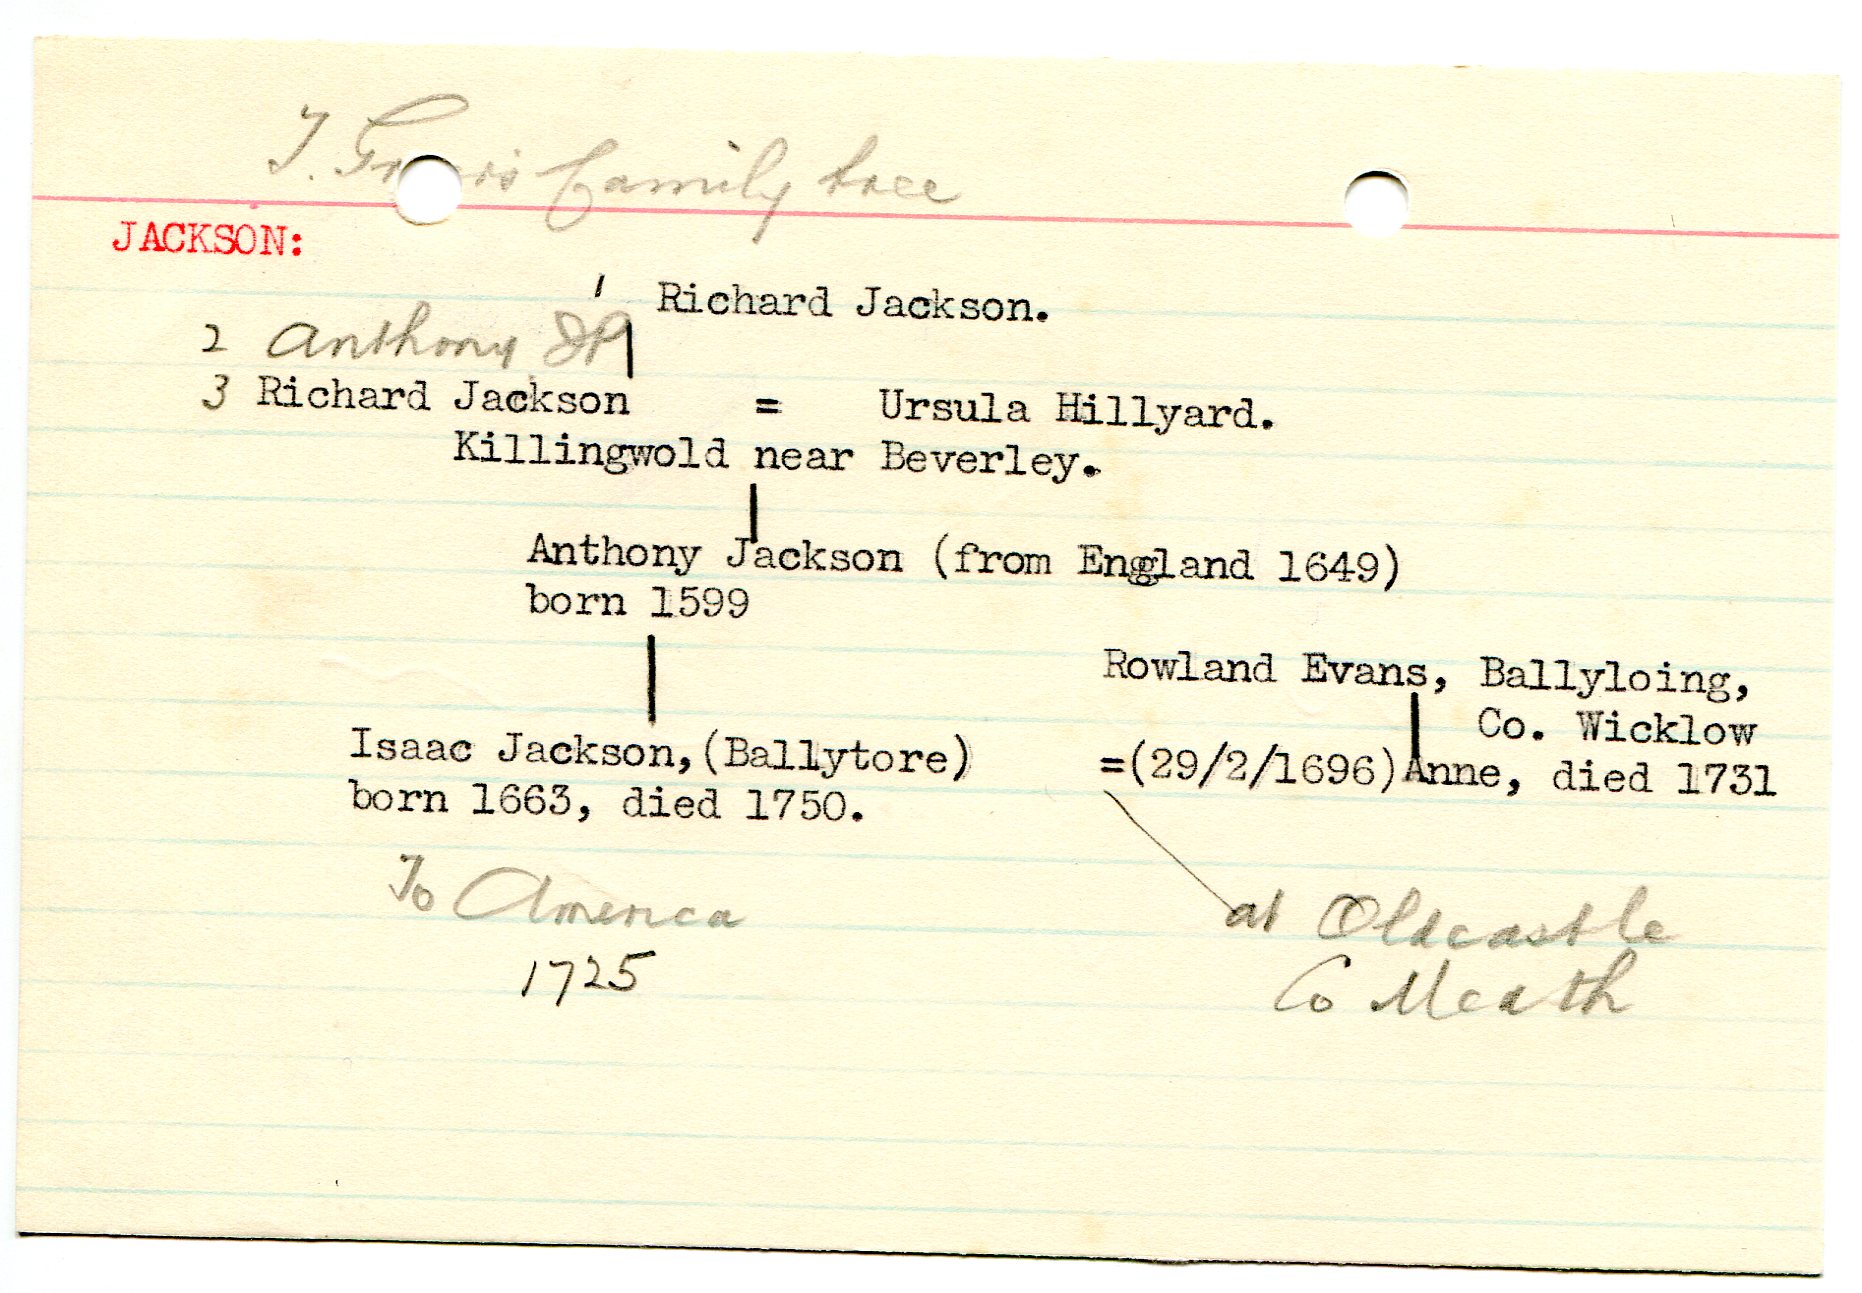 T. family tree
JACKSON:
1 Richard Jackson.
2 Anthony JP
3 Richard Jackson = Ursula Hillyard.
Killingwold near Beverley.
Anthony Jackson (from England 1649)
born 1599
Rowland Evans, Ballyloing,
Co. Wicklow
Isaac Jackson, (Ballytore) =(29/2/1696) Anne, died 1731
born 1663, died 1750.
To America
1725
at Oldcastle
Co Meath